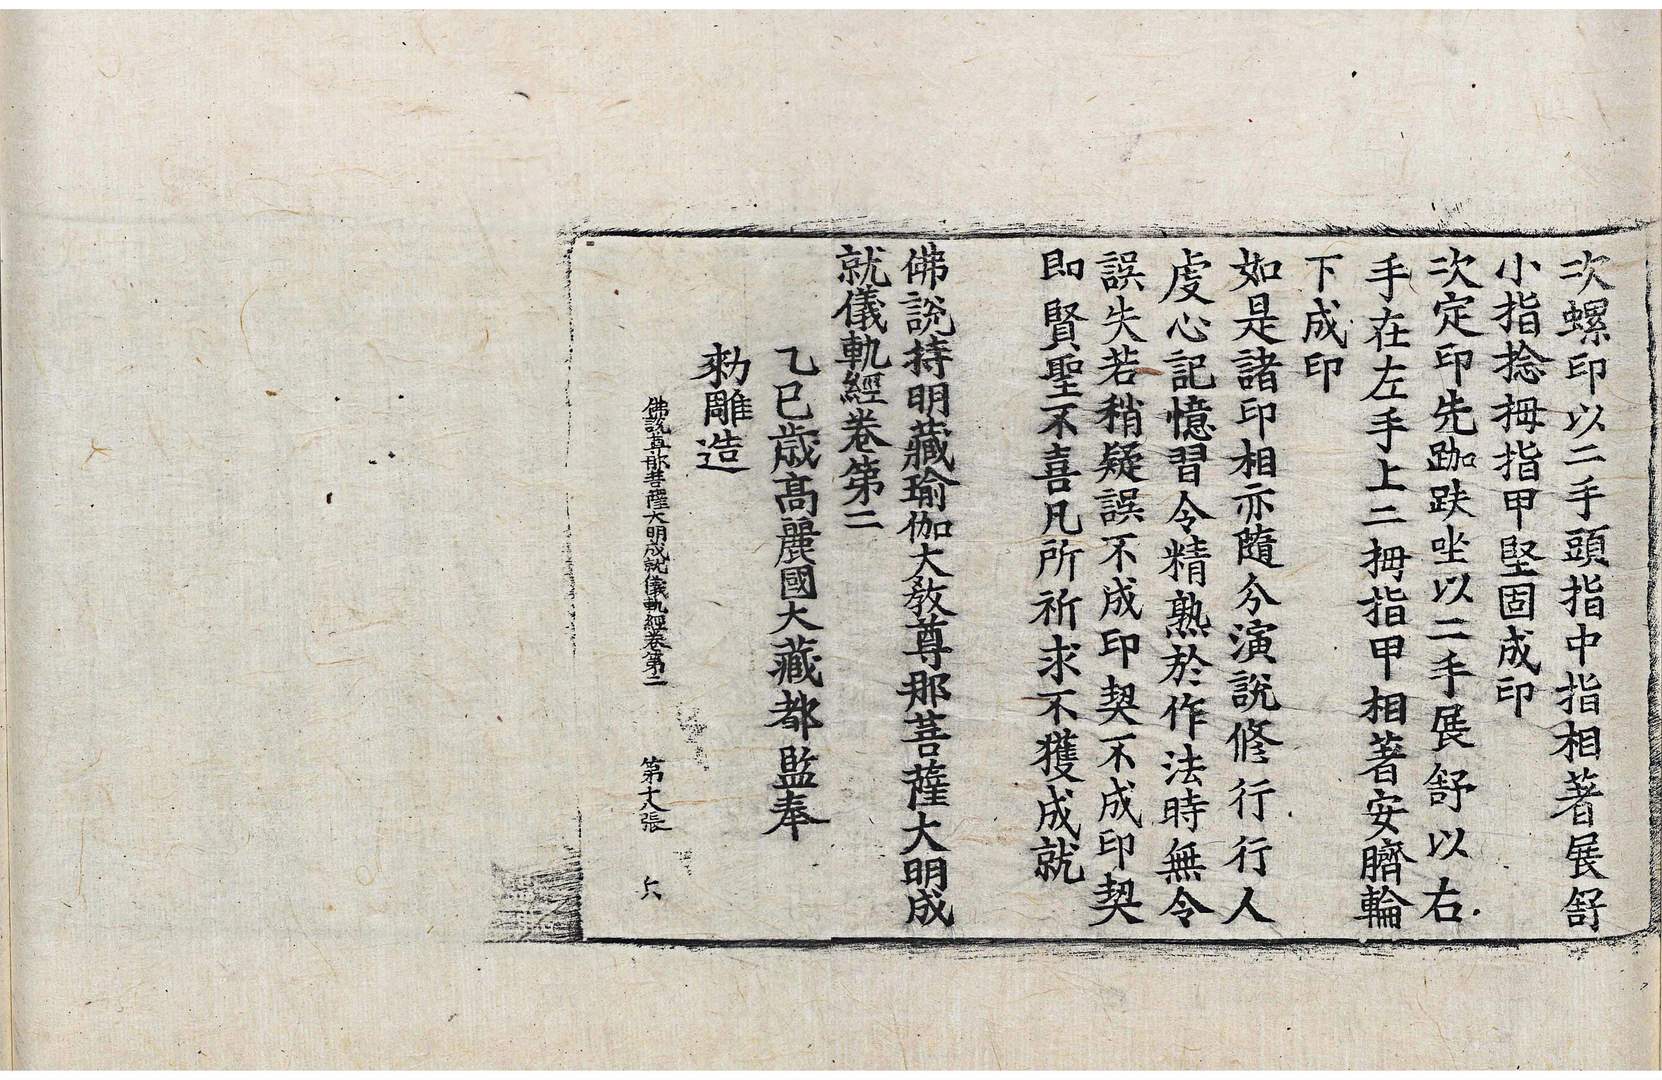 次螺印以二手頭指中指相著展舒
小指捻拇指甲堅固成印
次定印先跏趺坐以二手展舒以右
手在左手上二拇指甲相著安臍輪
下成印
如是諸印相亦隨分演說修行行人
虔心記憶習令精熟於作法時無令
誤失若稍疑誤不成印契不成印契
即賢聖不喜凡所祈求不獲成就
佛說持明藏瑜伽大教尊那菩薩大明成
就儀軌經卷第二
乙巳歲高麗國大藏都監奉
勅雕造
佛說尊那菩薩大明成就儀軌經卷第二 第十八張